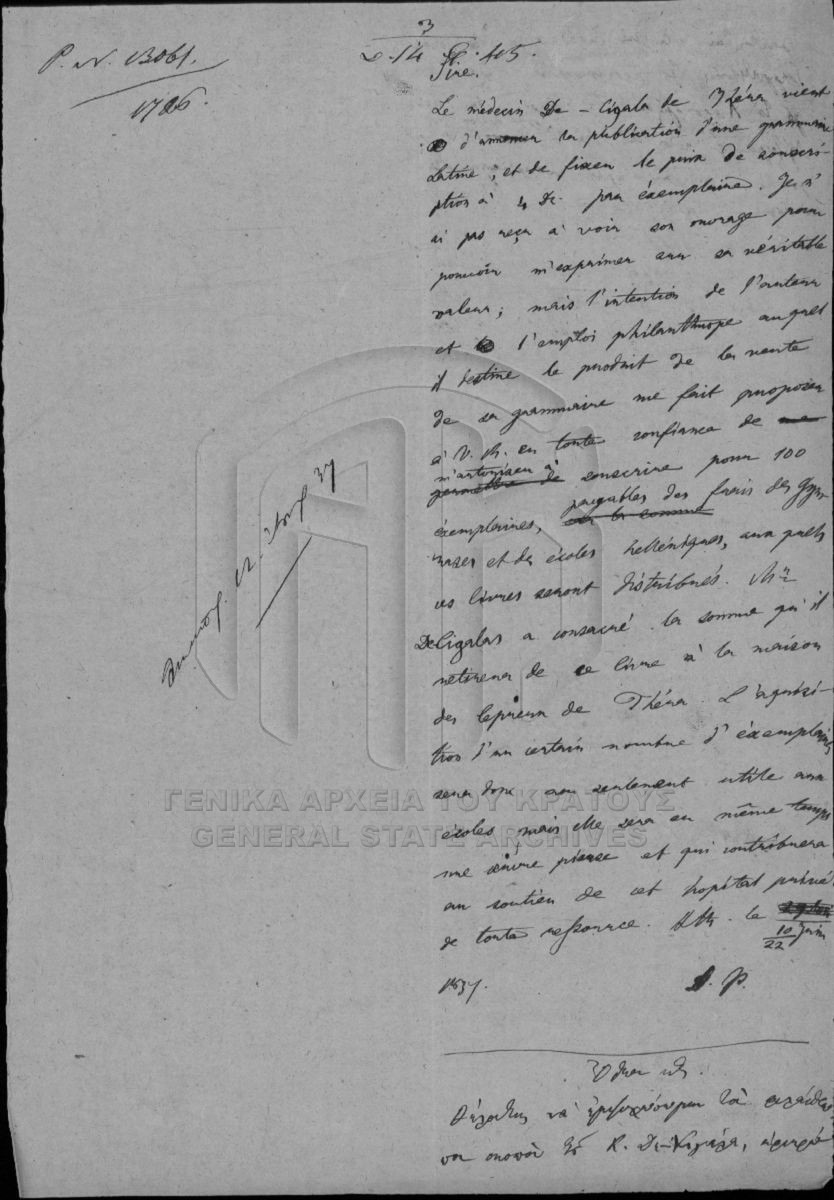 3
P. N. 13061.
D. 14 405.
1786.
Sire.
Le médecin De-Cigala de Théra vient
d'annoncer la publication d'une grammaire
Latine, et de fixer le prix de souscri-
ption à 4 Dr. par éxemplaire. Je n'
ai pas reçu à voir son ouvrage pour
pouvoir m'exprimer sur sa véritable
valeur; mais l'intention de l'auteur
et l'emploi philanthrope auquel
il destine le produit de la vente
de sa grammaire me fait proposer
à V. M. en toute confiance de me
m'autoriser à
permettre de souscrire pour 100
payables des frais des Gym-
éxemplaires, sur la somme
nases et des écoles helléniques, aux quels
ces livres seront distribués. Mr
De Cigalas a consacré la somme qu'il
retirera de ce livre à la maison
des lepreux de Théra. L'aquisi-
tion d'un certain nombre d'éxemplaires
sera donc non seulement utile aux
écoles, mais elle sera en même temps
une œuvre pieuse et qui contribuera
au soutien de cet hopital privé
de toute ressource. Ath. le
10/22 Juin
1837. A. P.
12. 37
ΓΕΝΙΚΑ ΑΡΧΕΙΑ ΤΟΥ ΚΡΑΤΟΥΣ
GENERAL STATE ARCHIVES
Ὄθων κτλ.
Θέλοντες νὰ ἐμψυχώσωμεν τὸν φιλάνθρω-
πον σκοπὸν τοῦ Κ. Δε-Κιγάλα,